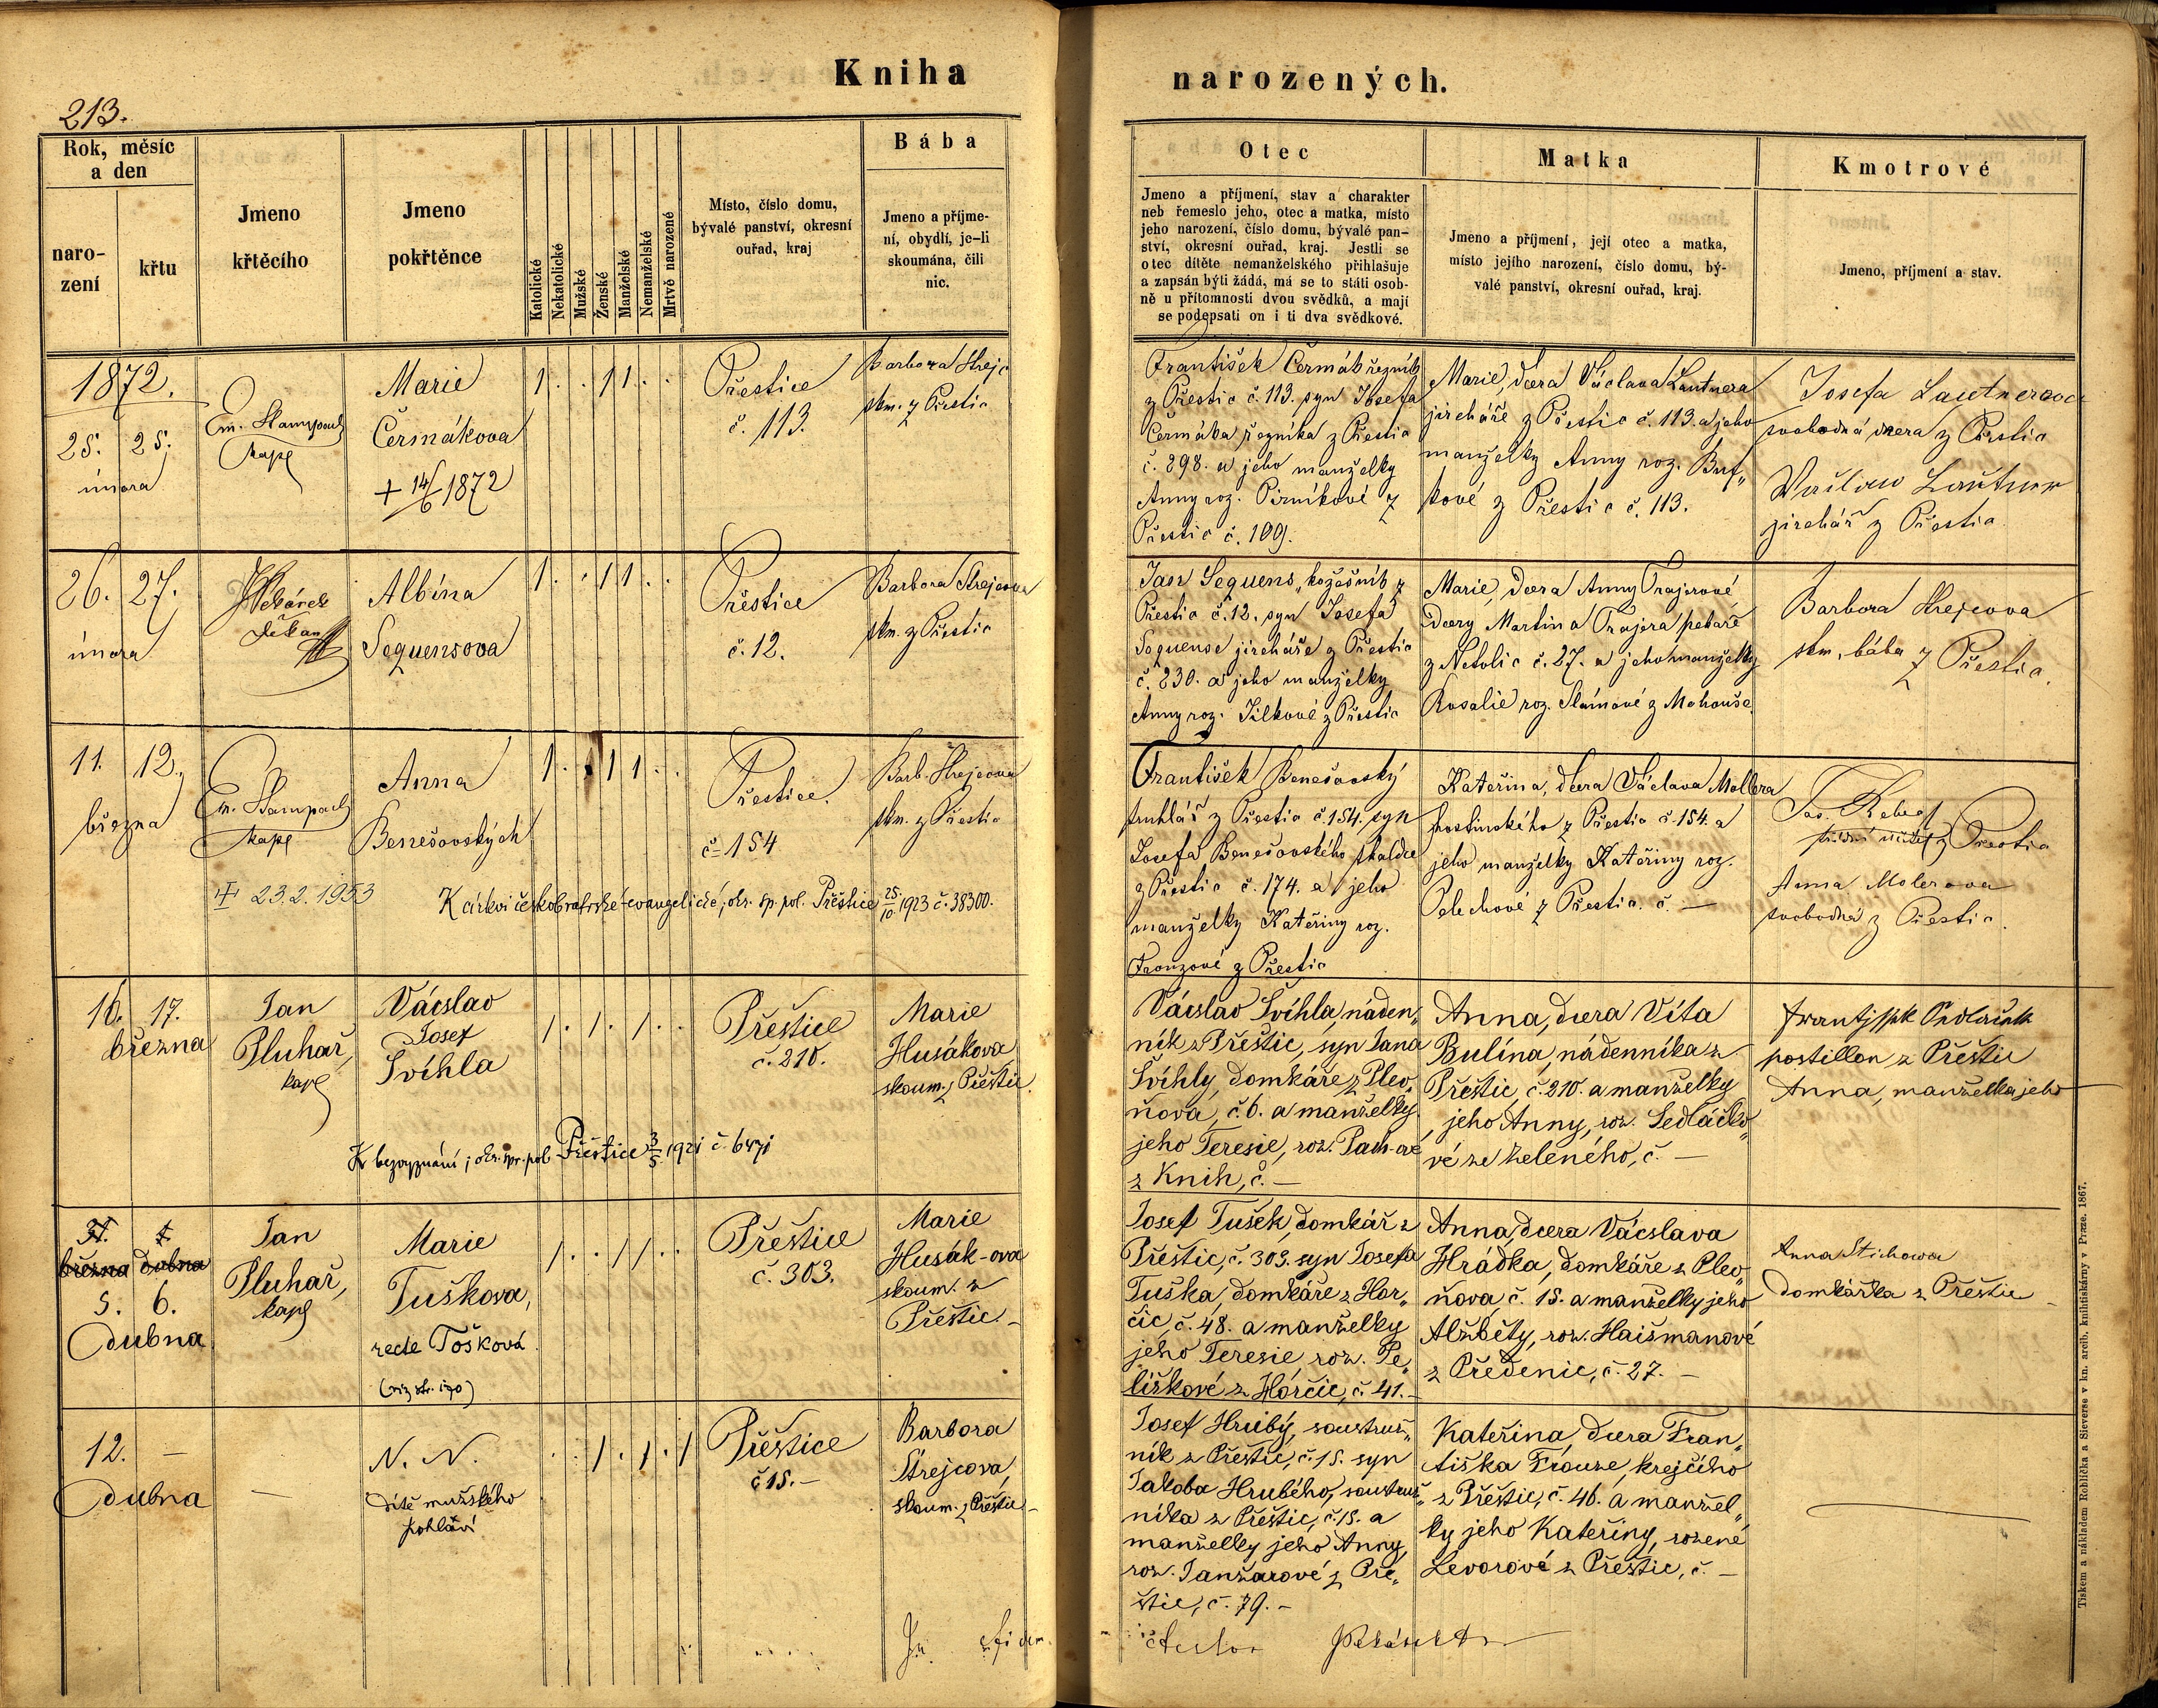 Kniha narozených.
213.
Rok, měsíc
a den
naro-
zení
křtu
Jmeno
křtěcího
Jmeno
pokřtěnce
Katolické
Nekatolické
Mužské
Ženské
Manželské
Nemanželské
Mrtvě narozené
Místo, číslo domu,
bývalé panství, okresní
ouřad, kraj
Bába
Jmeno a příjme-
ní, obydlí, je-li
skoumána, čili
nic.
Otec
Jmeno a příjmení, stav a charakter
neb řemeslo jeho, otec a matka, místo
jeho narození, číslo domu, bývalé pan-
ství, okresní ouřad, kraj. Jestli se
otec dítěte nemanželského přihlašuje
a zapsán býti žádá, má se to státi osob-
ně u přítomnosti dvou svědků, a mají
se podepsati on i ti dva svědkové.
Matka
Jmeno a příjmení, její otec a matka,
místo jejího narození, číslo domu, bý-
valé panství, okresní ouřad, kraj.
Kmotrové
Jmeno, příjmení a stav.
1872.
25. 25.
února
Em. Stampach
kapl
Marie
Čermákova
+ 14/6 1872
1 . . 1 1 . .
Přestice
č. 113.
Barbora Strejc
skm. z Přestic
František Čermák řezník
z Přestic č. 113. syn Josefa
Čermáka řezníka z Přestic
č. 298. a jeho manželky
Anny roz. Pirníkové z
Přestic č. 109.
Marie, dcera Václava Lautnera
jircháře z Přestic č. 113. a jeho
manželky Anny roz.
kové z Přestic č. 113.
Josefa Lautnerova
svobodná dcera z Přestic
Wácslaw Lautner
jirchář z Přestic
26. 27.
února
děkan
Albína
Sequensova
1 . . 1 1 . .
Přestice
č. 12.
Barbora Strejcova
skm. z Přestic
Jan Sequens, kožešník z
Přestic č. 12. syn Josefa
Sequense jircháře z Přestic
č. 230. a jeho manželky
Anny roz. Jílkové z Přestic
Marie, dcera Anny Trajerové
dcery Martina Trajera pekaře
z Netolic č. 27. a jeho manželky
Rosalie roz. Slámové z Mohouše.
Barbora Strejcova
skm. bába z Přestic.
11. 12.
března
Em. Stampach
kapl
Anna
Benešovských
1 . . 1 1 . .
Přestice.
č 154
Barb. Strejcova
skm. z Přestic
23.2.1953
K církvi českobratrské evangelické; okr. sp. pol. Přeštice 25/10 1923 č. 38300.
František Benešovský
truhlář z Přestic č. 154. syn
Josefa Benešovského skaldce
z Přestic č. 174. a jeho
manželky Kateřiny roz.
Frouzové z Přestic
Kateřina, dcera Václava Mollera
hostinského z Přestic č. 154. a
jeho manželky Kateřiny roz.
Pelechové z Přestic č. —
z Přestic
Anna Molerova
svobodná z Přestic.
16. 17.
března
Jan
Pluhař,
kapl
Vácslav
Josef
Švíhla
1 . 1 . 1 . .
Přeštice
č. 210.
Marie
Husákova
skoum. z Přeštic.
K bezvyznání; okr. spr. pol. Přeštice 3/5 1921 č. 6471
Vácslav Švíhla, náden„
ník z Přeštic, syn Jana
Švíhly, domkáře z Plev„
ňova, č. 6. a manželky
jeho Teresie, roz. Pach-ové
z Knih, č. —
Anna, dcera Víta
Bulína, nádenníka z
Přeštic, č. 210. a manželky
jeho Anny, roz. Sedláčko„
vé ze Zeleného, č. —
Frantissek Sedlaček
postillon z Přeštic
Anna, manželka jeho
31. 1.
března dubna
5. 6.
dubna
Jan
Pluhař,
kapl
Marie
Tuškova,
recte Tošková
(viz str. 170)
1 . . 1 1 . .
Přeštice
č. 303.
Marie
Husák-ova
skoum. z
Přeštic. –
Josef Tušek, domkář z
Přeštic, č. 303. syn Josefa
Tuška, domkáře z Hor„
čic, č. 48. a manželky
jeho Teresie, roz. Pe„
liškové z Horčic, č. 41. –
Anna, dcera Vácslava
Hrádka, domkáře z Plev„
ňova, č. 15. a manželky jeho
Alžběty, roz. Haišmanové
z Předenic, č. 27. –
Anna Stichowa
domkářka z Přeštic –
12. —
dubna
—
N. N.
dítě mužského
pohlaví
. . 1 . 1 . 1
Přeštice
č 15. –
Barbora
Strejcova,
skoum. z Přeštic –
Josef Hrubý, soustruž„
ník z Přeštic, č. 15. syn
Jakoba Hrubého, soustruž„
níka z Přeštic, č. 15. a
manželky jeho Anny,
roz. Janžarové z Pře„
štic, č. 79. –
Kateřina, dcera Fran„
tiška Frouze, krejčího
z Přeštic, č. 46. a manžel„
ky jeho Kateřiny, rozené
Levorové z Přeštic, č. –
Tiskem a nákladem Rohlíčka a Sieverse v kn. arcib. knihtiskárny v Praze. 1867.